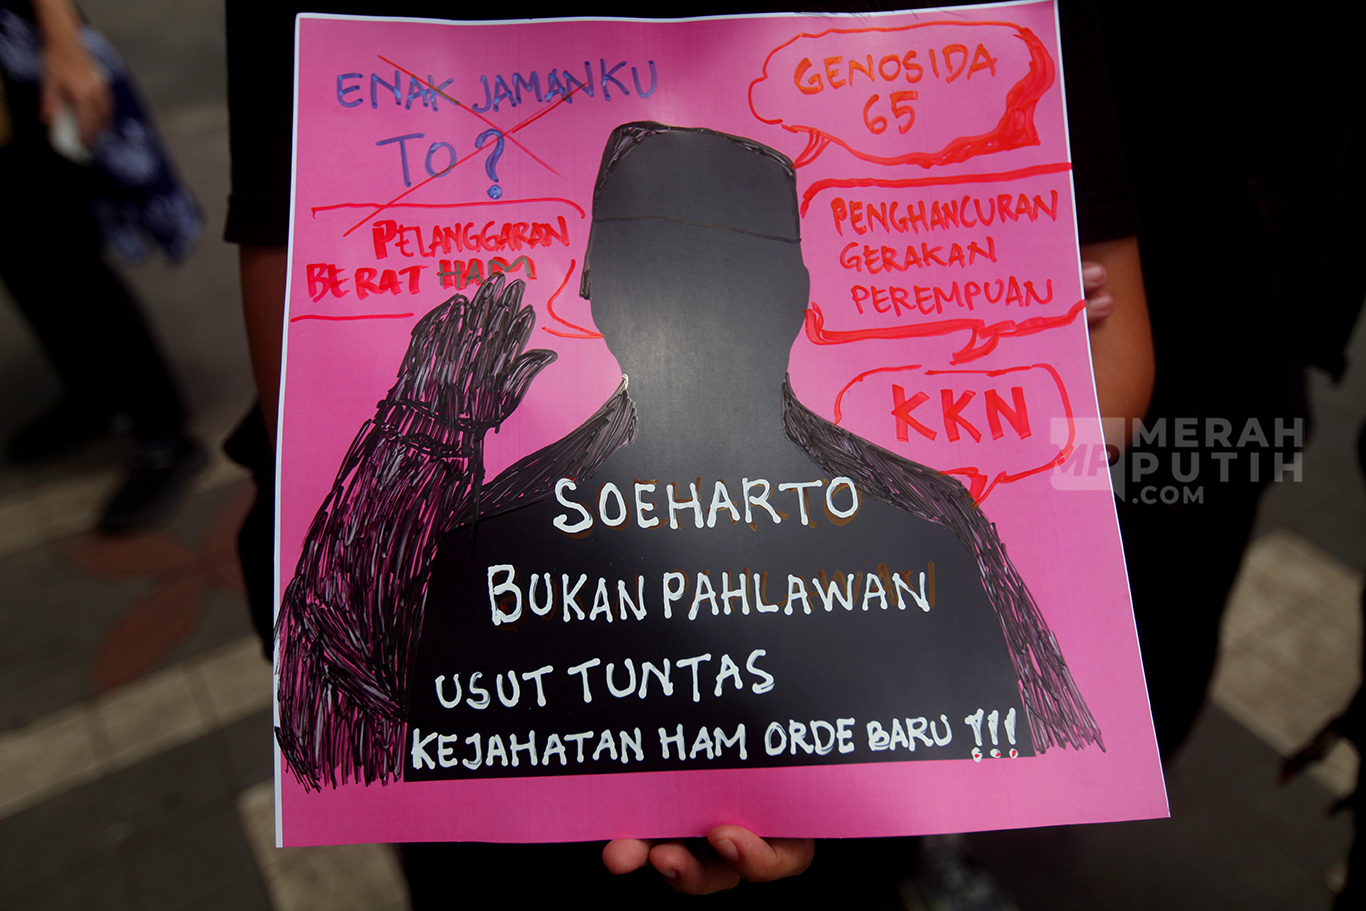 ENAK JAMANKU
TO?
GENOSIDA
65
PELANGGARAN
BERAT HAM
PENGHANCURAN
GERAKAN
PEREMPUAN
KKN
SOEHARTO
BUKAN PAHLAWAN
USUT TUNTAS
KEJAHATAN HAM ORDE BARU !!!
MP MERAH
PUTIH
.COM